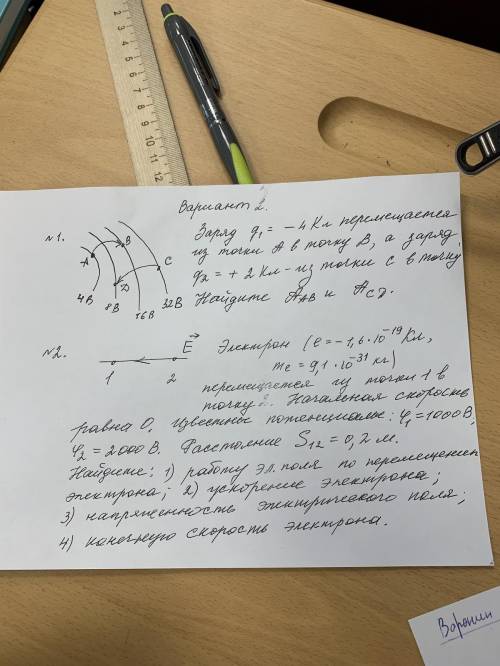 2 3 4 5 6 7 8 9 10 11 12
Вариант 2.
№1.
Заряд q₁ = − 4 Кл перемещается
из точки А в точку В, а заряд
q₂ = + 2 Кл - из точки С в точку
Найдите A_AB и A_CD.
A B C D
4В 8В 16В 32В
№2.
1 2 E⃗
Электрон (e = − 1,6 · 10⁻¹⁹ Кл,
mₑ = 9,1 · 10⁻³¹ кг)
перемещается из точки 1 в
точку 2. Начальная скорость
равна 0, Известны потенциалы: φ₁ = 1000 В,
φ₂ = 2000 В. Расстояние S₁₂ = 0,2 м.
Найдите: 1) работу эл. поля по перемещению
электрона; 2) ускорение электрона;
3) напряженность электрического поля;
4) конечную скорость электрона.
Воронин